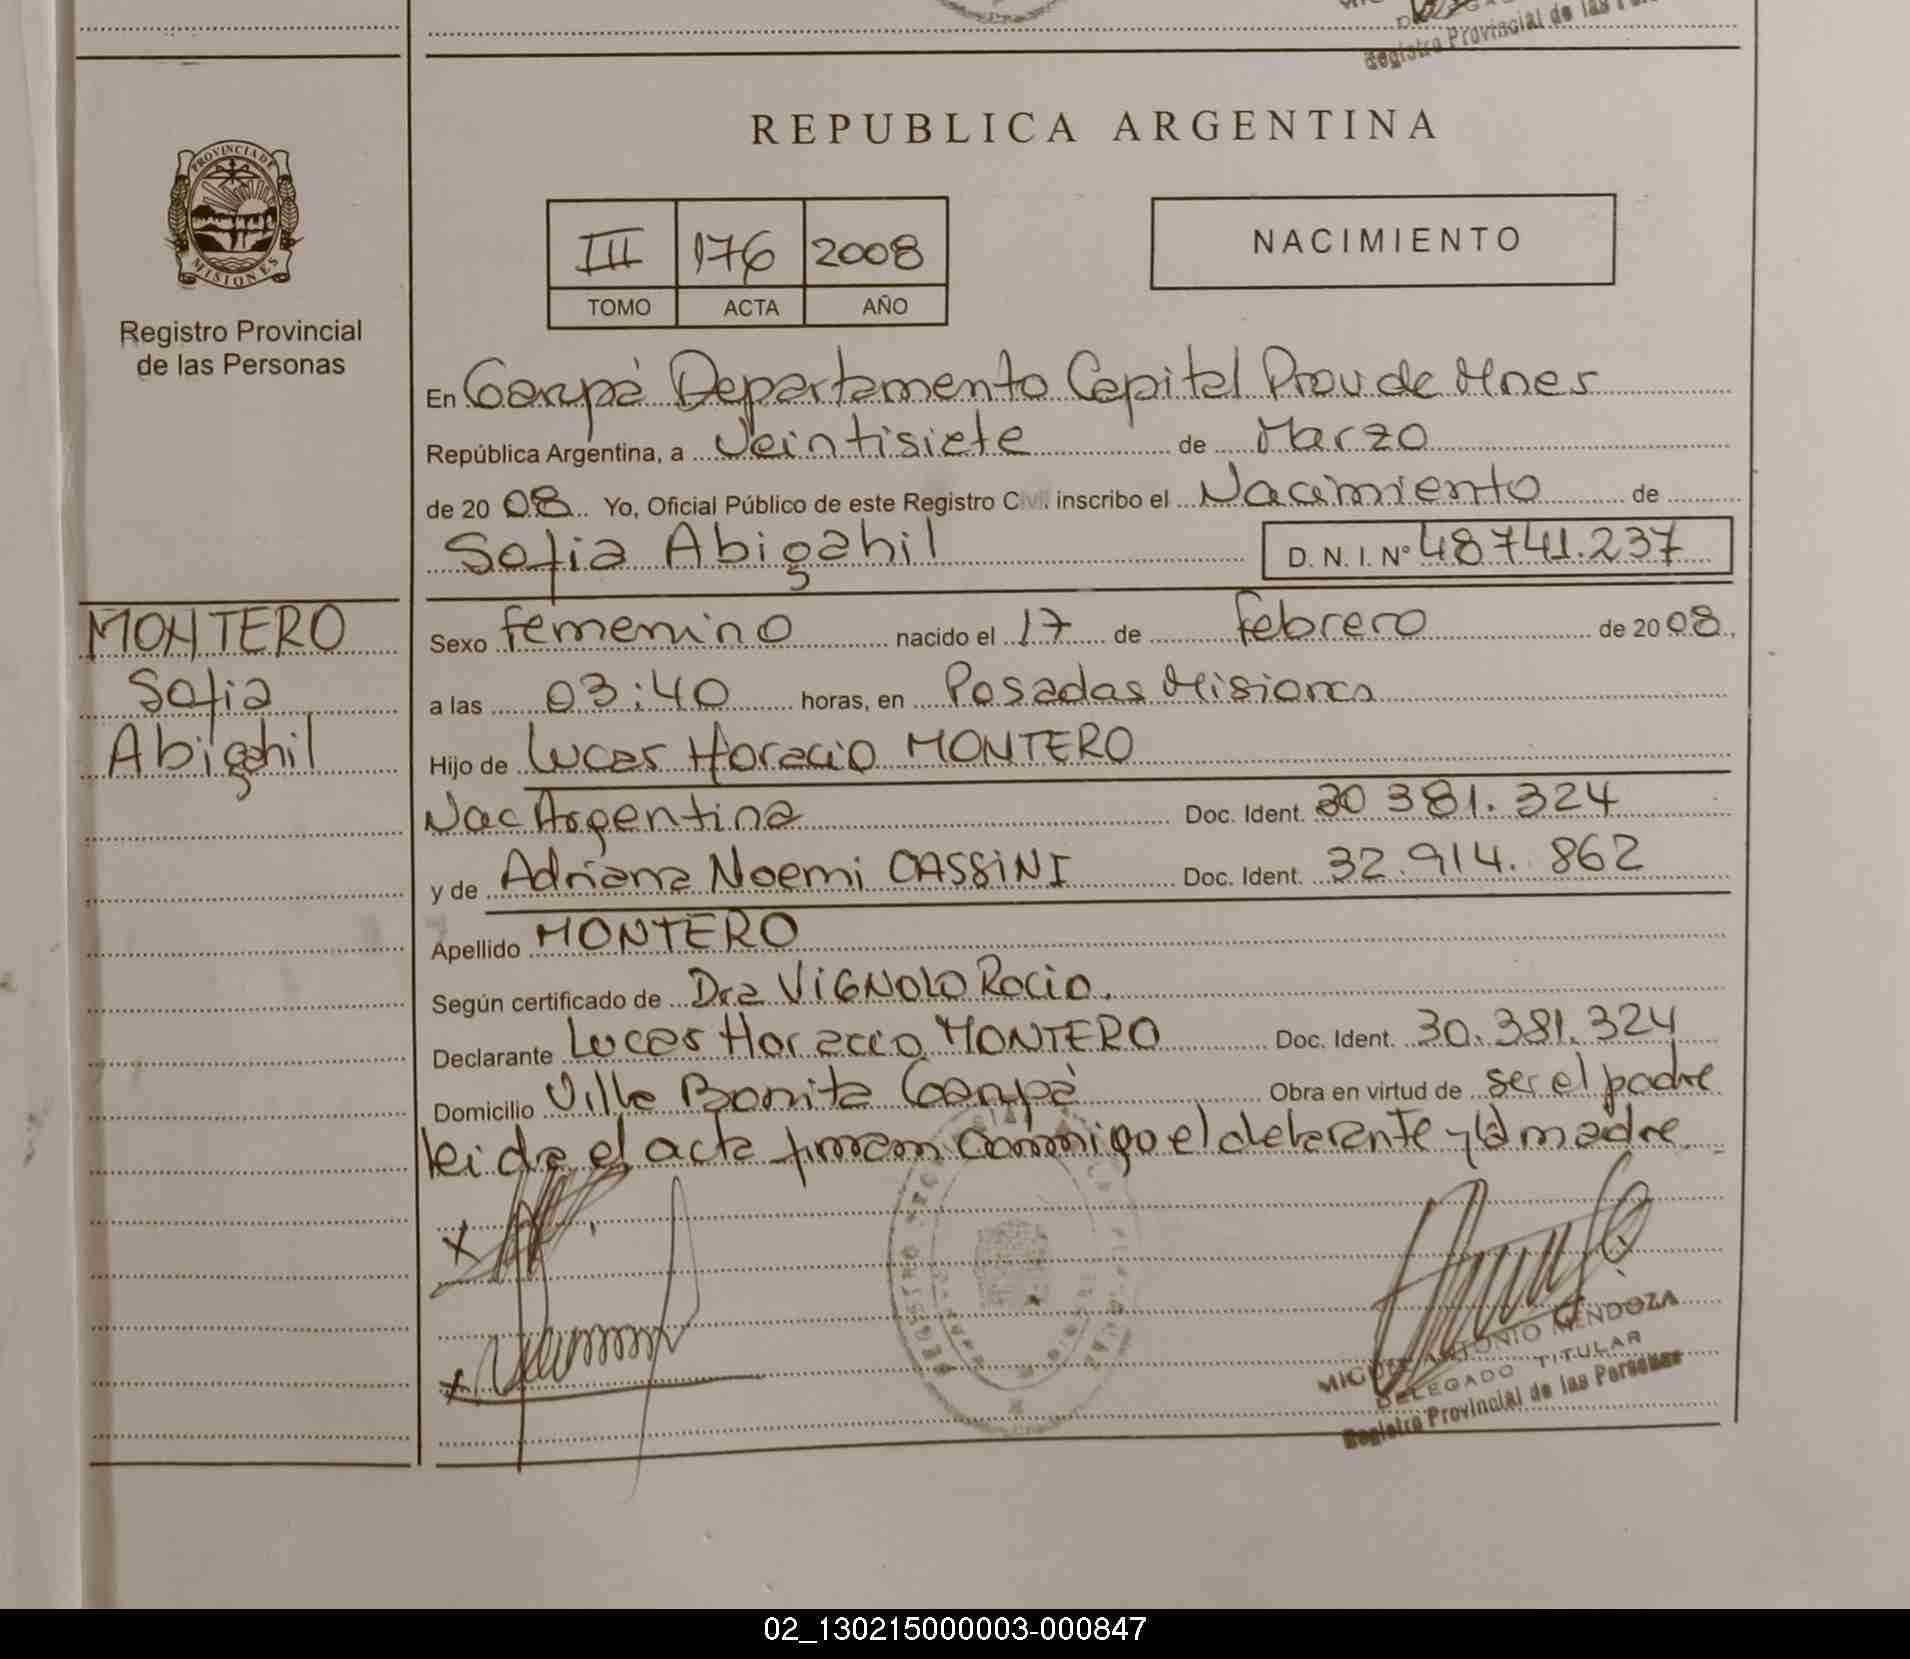 Registro Provincial de las Personas
REPUBLICA ARGENTINA
PROVINCIA DE
MISIONES
Registro Provincial
de las Personas
III 176 2008
TOMO ACTA AÑO
NACIMIENTO
En Garupá Departamento Capital Prov de Mnes
República Argentina, a Veintisiete de Marzo
de 20 08 Yo, Oficial Público de este Registro Civil inscribo el Nacimiento de
Sofia Abigahil D. N. I. Nº 48741.237
MONTERO
Sofia
Abigahil
Sexo femenino nacido el 17 de febrero de 20 08,
a las 03:40 horas, en Posadas Misiones
Hijo de Lucas Horacio MONTERO
Nac Argentina Doc. Ident. 30 381.324
y de Adriana Noemi CASSiNI Doc. Ident. 32.914.862
Apellido MONTERO
Según certificado de Dra ViGNOLO Rocio.
Declarante Lucas Horacio MONTERO Doc. Ident. 30.381.324
Domicilio Villa Bonita Garupá Obra en virtud de ser el padre
leida el acta firman conmigo el delarante y la madre
MIGUEL ANTONIO MENDOZA
DELEGADO TITULAR
Registro Provincial de las Personas
02_130215000003-000847